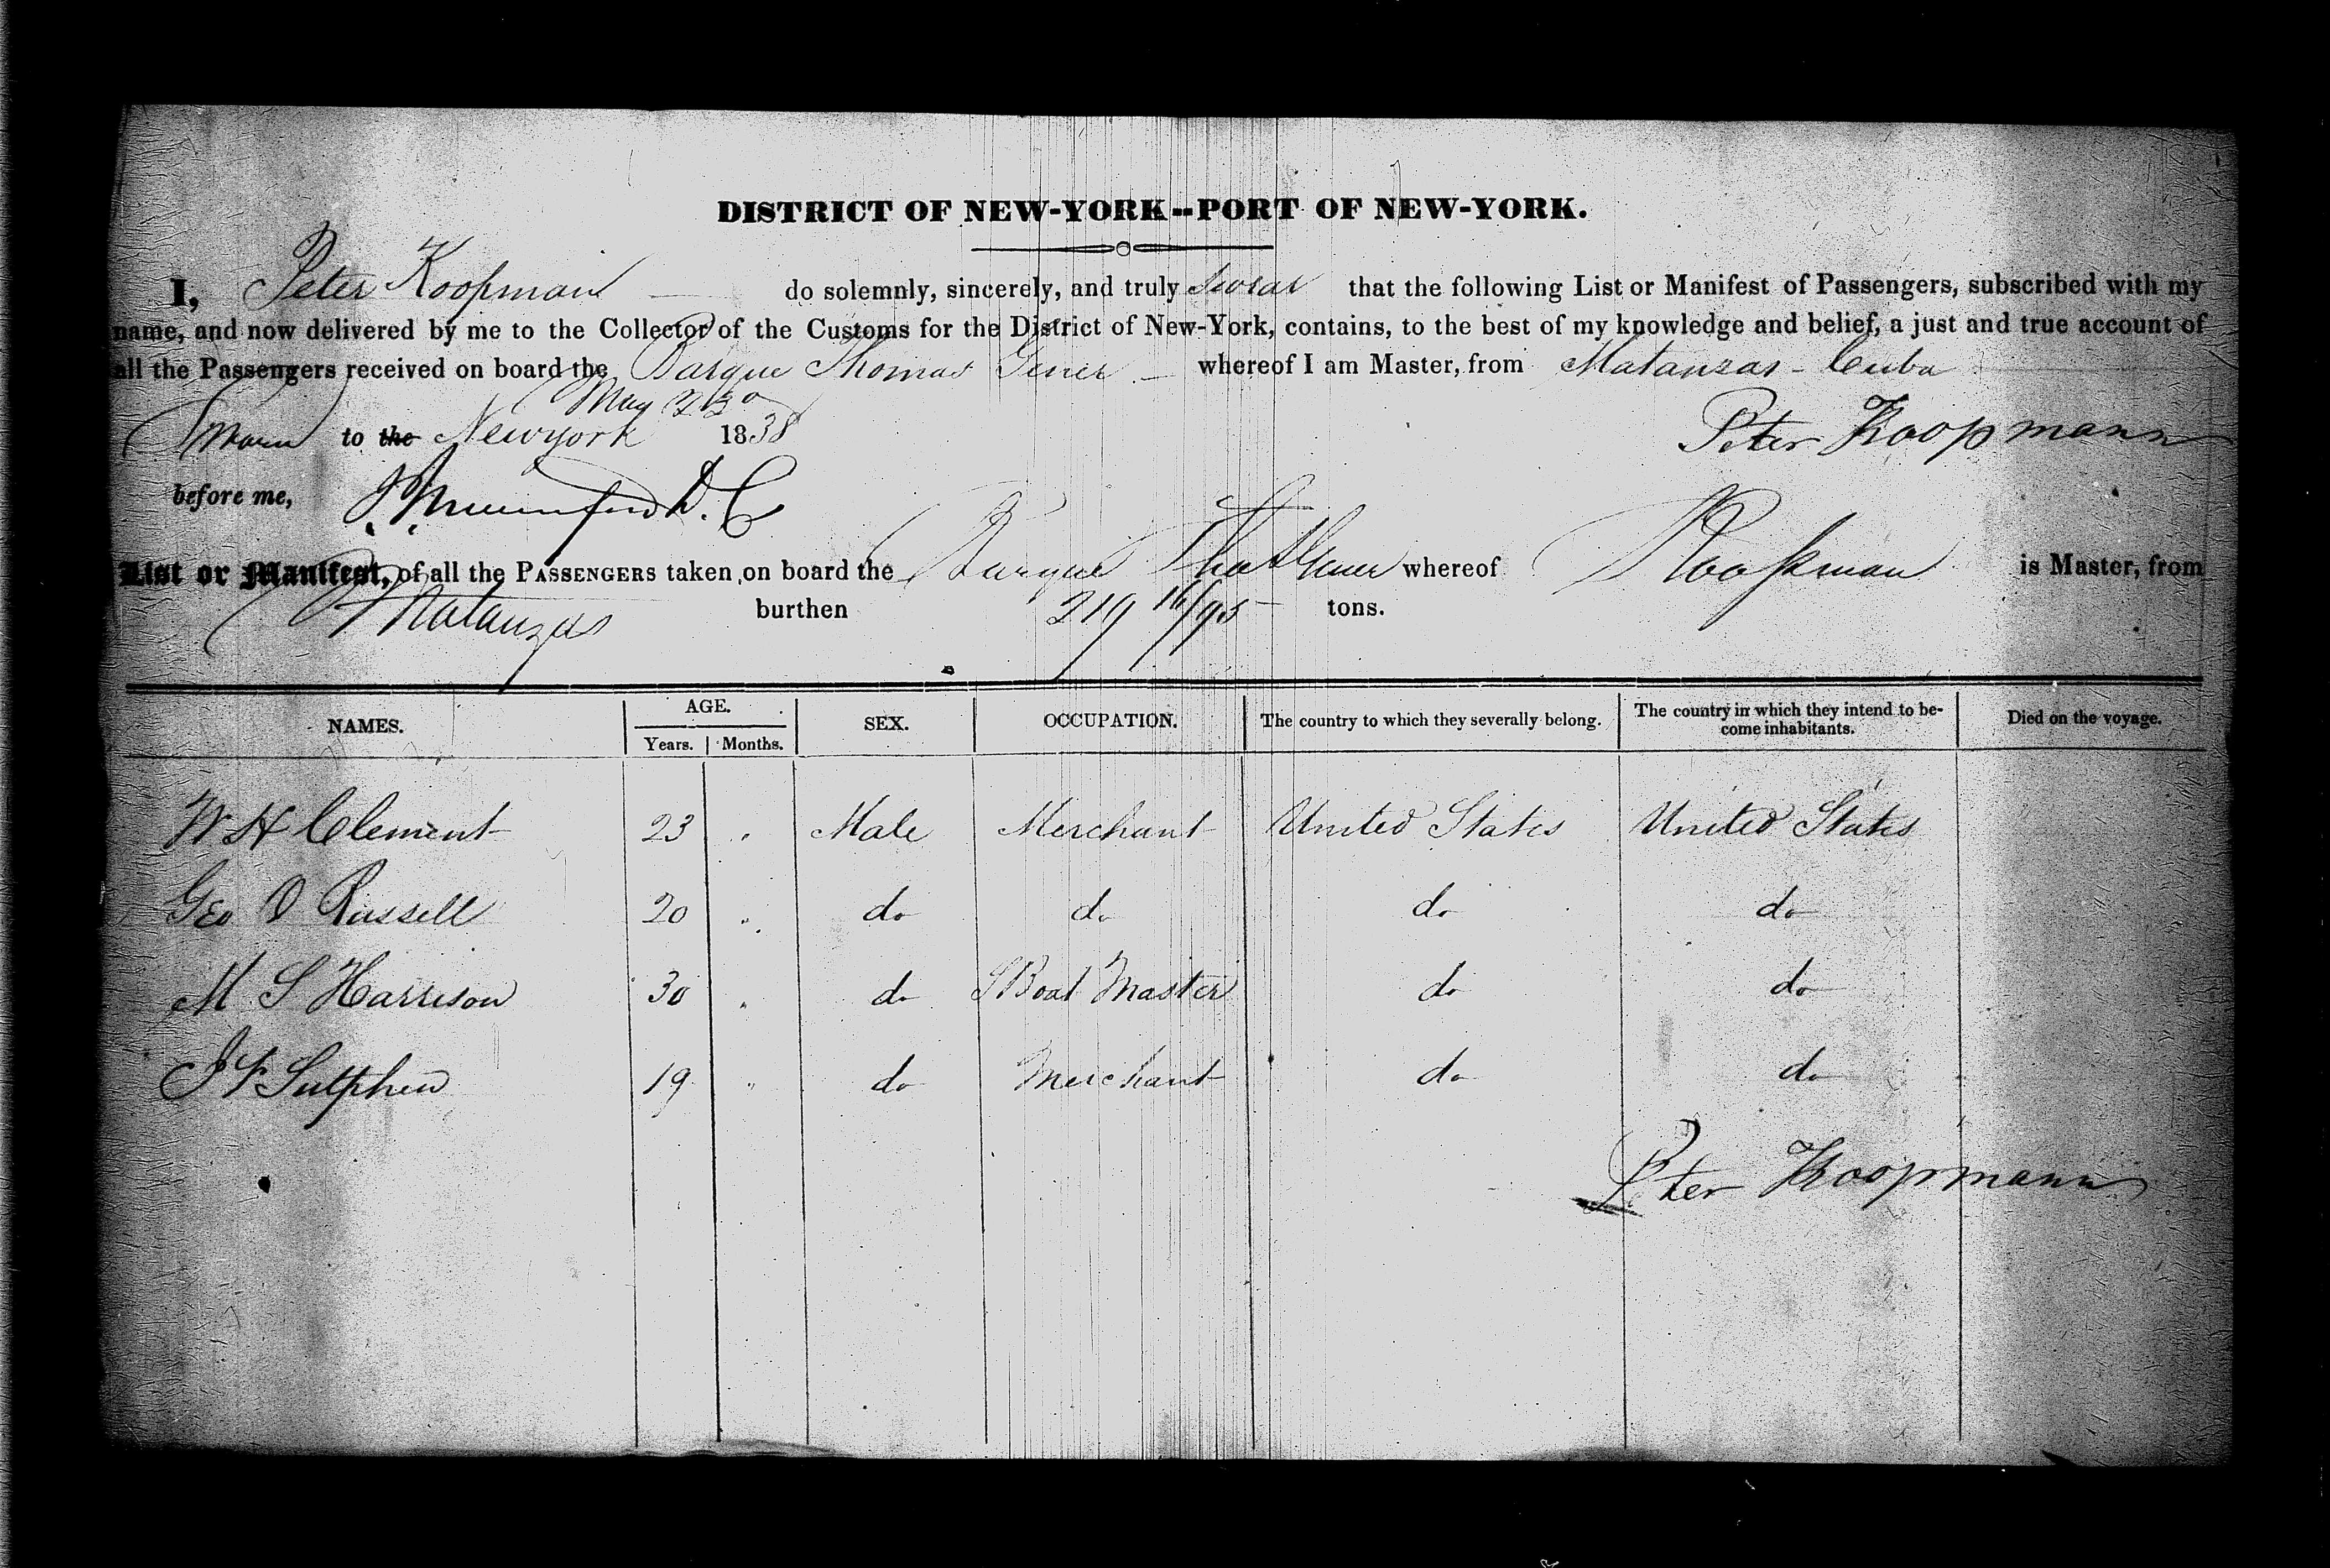 DISTRICT OF NEW-YORK--PORT OF NEW-YORK.
I, Peter Koopman do solemnly, sincerely, and truly swear that the following List or Manifest of Passengers, subscribed with my
name, and now delivered by me to the Collector of the Customs for the District of New-York, contains, to the best of my knowledge and belief, a just and true account of
all the Passengers received on board the Barque Thomas Gener whereof I am Master, from Matanzas - Cuba
May 23
Sworn to the New york 1838 Peter Koopmann
before me, D. C
List or Manifest, of all the PASSENGERS taken on board the Barque Gener whereof Koopman is Master, from
Matanzas burthen 219 16/95 tons.
NAMES. AGE. Years. Months. SEX. OCCUPATION. The country to which they severally belong. The country in which they intend to be-
come inhabitants. Died on the voyage.
W H Clement 23 " Male Merchant United States United States
Geo O Russell 20 " do do do do
M S Harrison 30 " do S Boat Master do do
J Sutphen 19 " do Merchant do do
Peter Koopmann